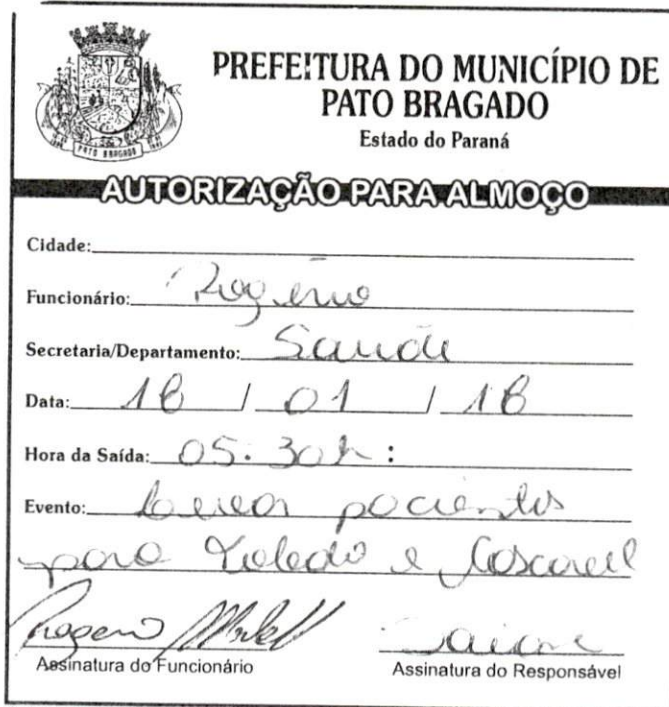 PREFEITURA DO MUNICÍPIO DE
PATO BRAGADO
Estado do Paraná
PATO BRAGADO
AUTORIZAÇÃO PARA ALMOÇO
Cidade:
Funcionário: Rogério
Secretaria/Departamento: Saúde
Data: 16 / 01 / 16
Hora da Saída: 05:30h :
Evento: Levar pacientes
para Toledo e Cascavel
Rogerio
Assinatura do Funcionário
Assinatura do Responsável